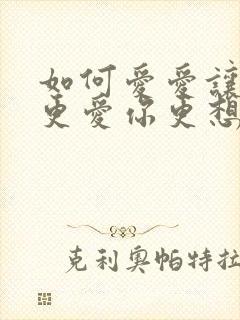 如何愛愛讓
更愛你更想
克利奧帕特拉